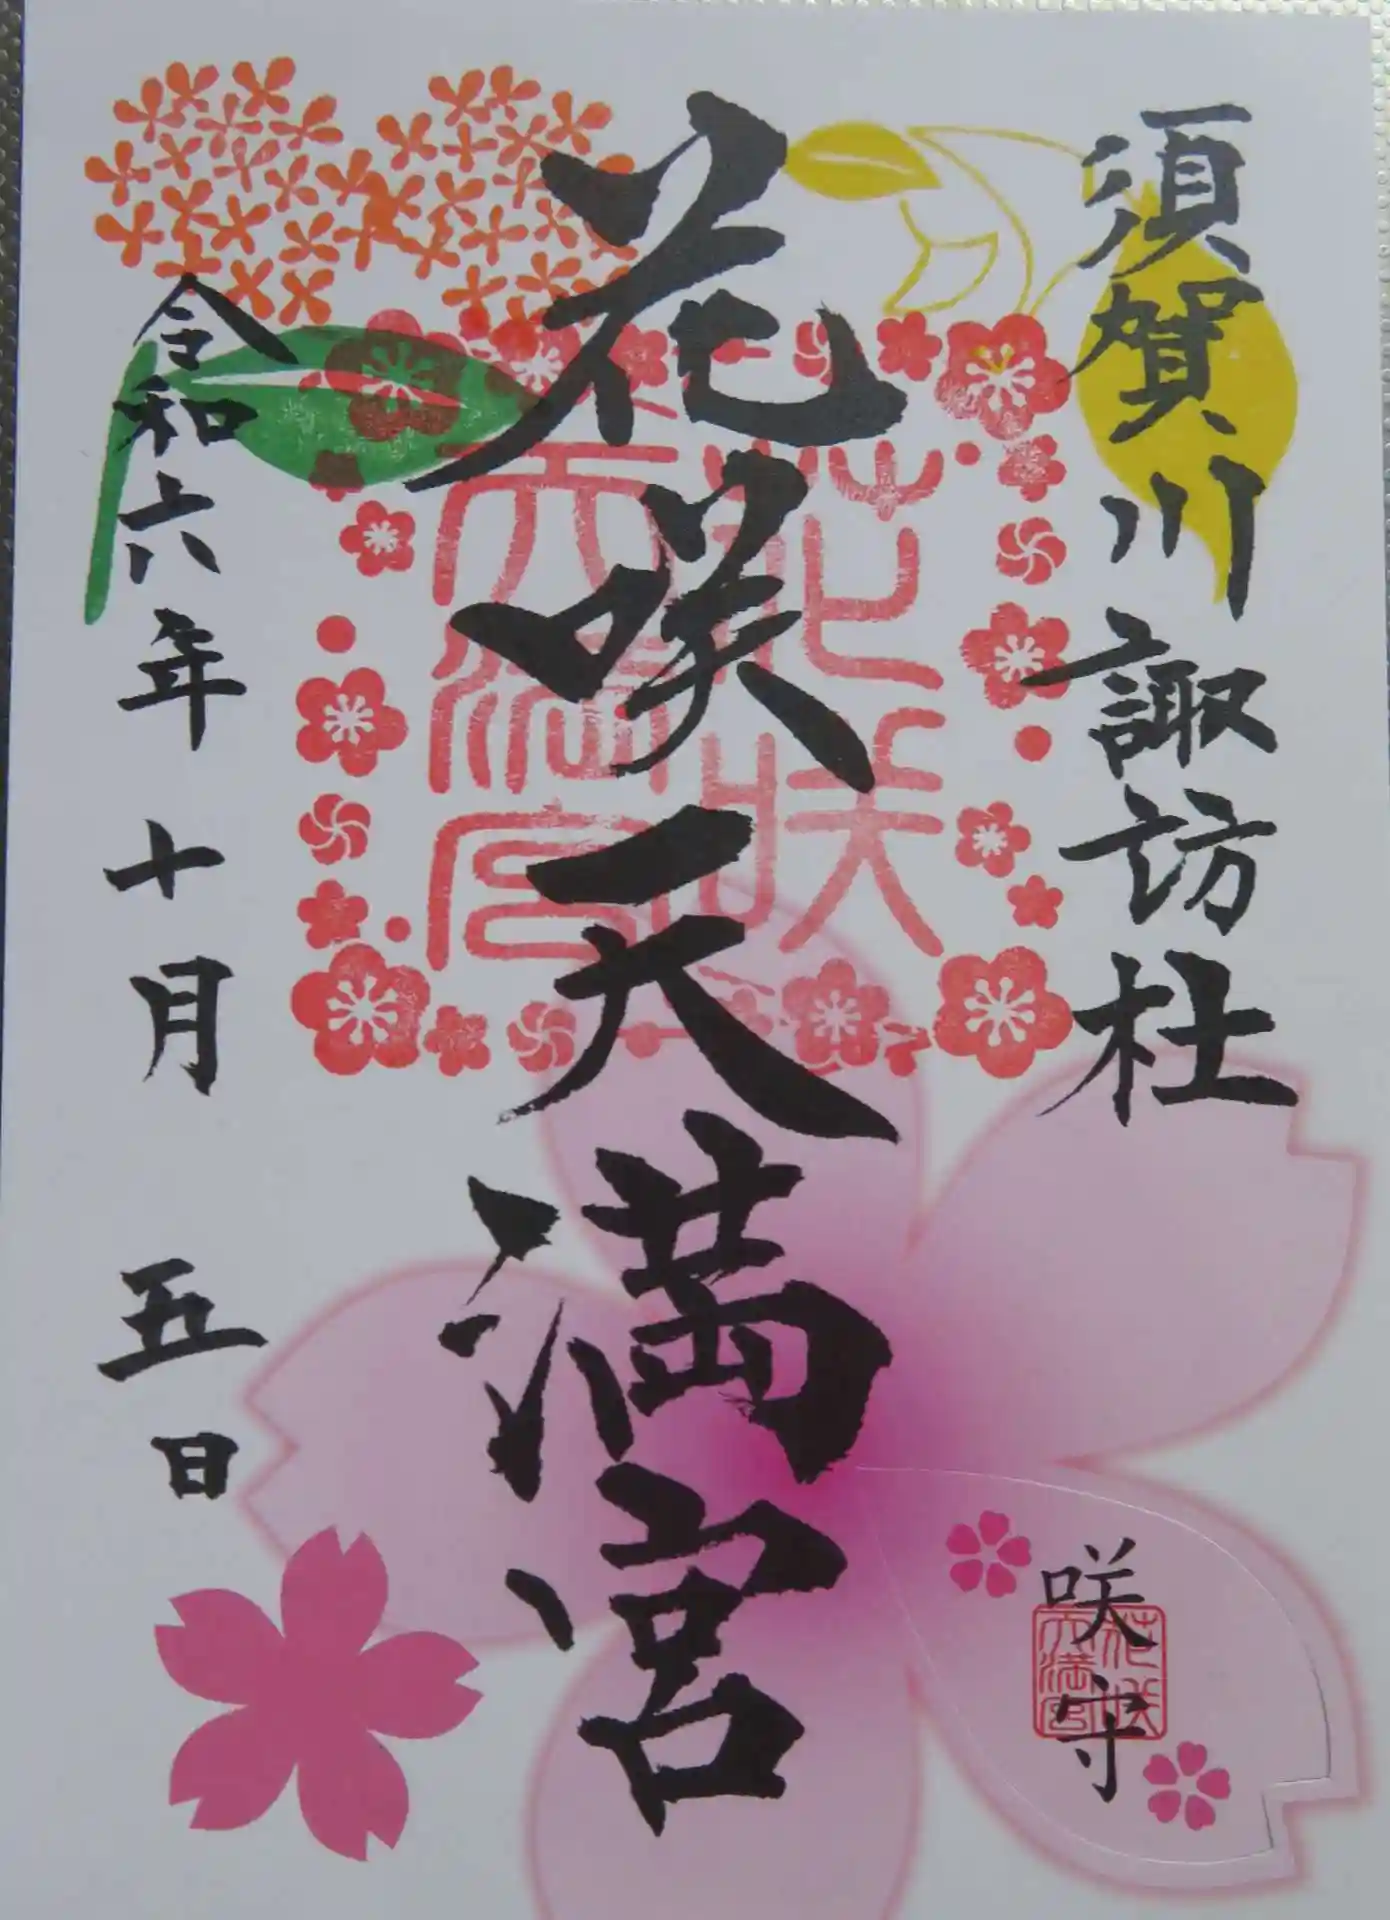 須賀川諏訪社
花咲天満宮
花咲天満宮
令和六年十月五日
咲守
花咲天満宮